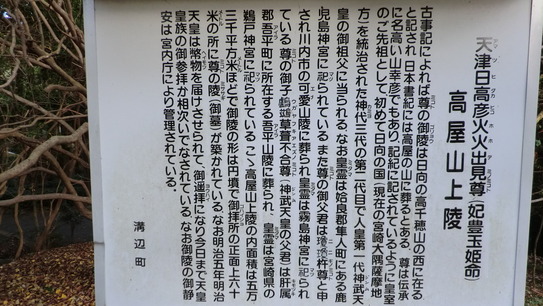 天津日高彦火火出見尊(妃豊玉姫命)
高屋山上陵
古事記によれば尊の御陵は日向の高千穂山の西に在る
と記され日本書紀には高屋の山に葬るとある 尊は伝承
に名高い山幸彦でもあり記紀に記されているように皇室
のご先祖として初めて日向の国(現在の宮崎大隅薩摩地
方)を統治された神代三代の第二代目で人皇第一代神武天
皇の御祖父に当られる なお皇霊は姶良郡隼人町にある鹿
児島神宮に祀られている また尊の御父君は瓊瓊杵尊と申
され川内市の可愛山陵に葬られ皇霊は霧島神宮に祀られ
ている 尊の御子鸕鶿草葺不合尊(神武天皇の父君)は肝属
郡吾平町に所在する吾平山陵に葬られ、皇霊は宮崎県の
鵜戸神宮に祀られている こゝ高屋山上陵の内面積は五万
三千平方米ほどで御陵の形は円墳で御拝所の正面上六十
米の所に尊の陵(御墓)が築かれている なお明治五年明治
天皇は幣物を届けさせられて、御遥拝になり今日まで天皇
皇族の御参拝が相次いでなされている なお御陵の御静
安は宮内庁により管理されている。
溝辺町